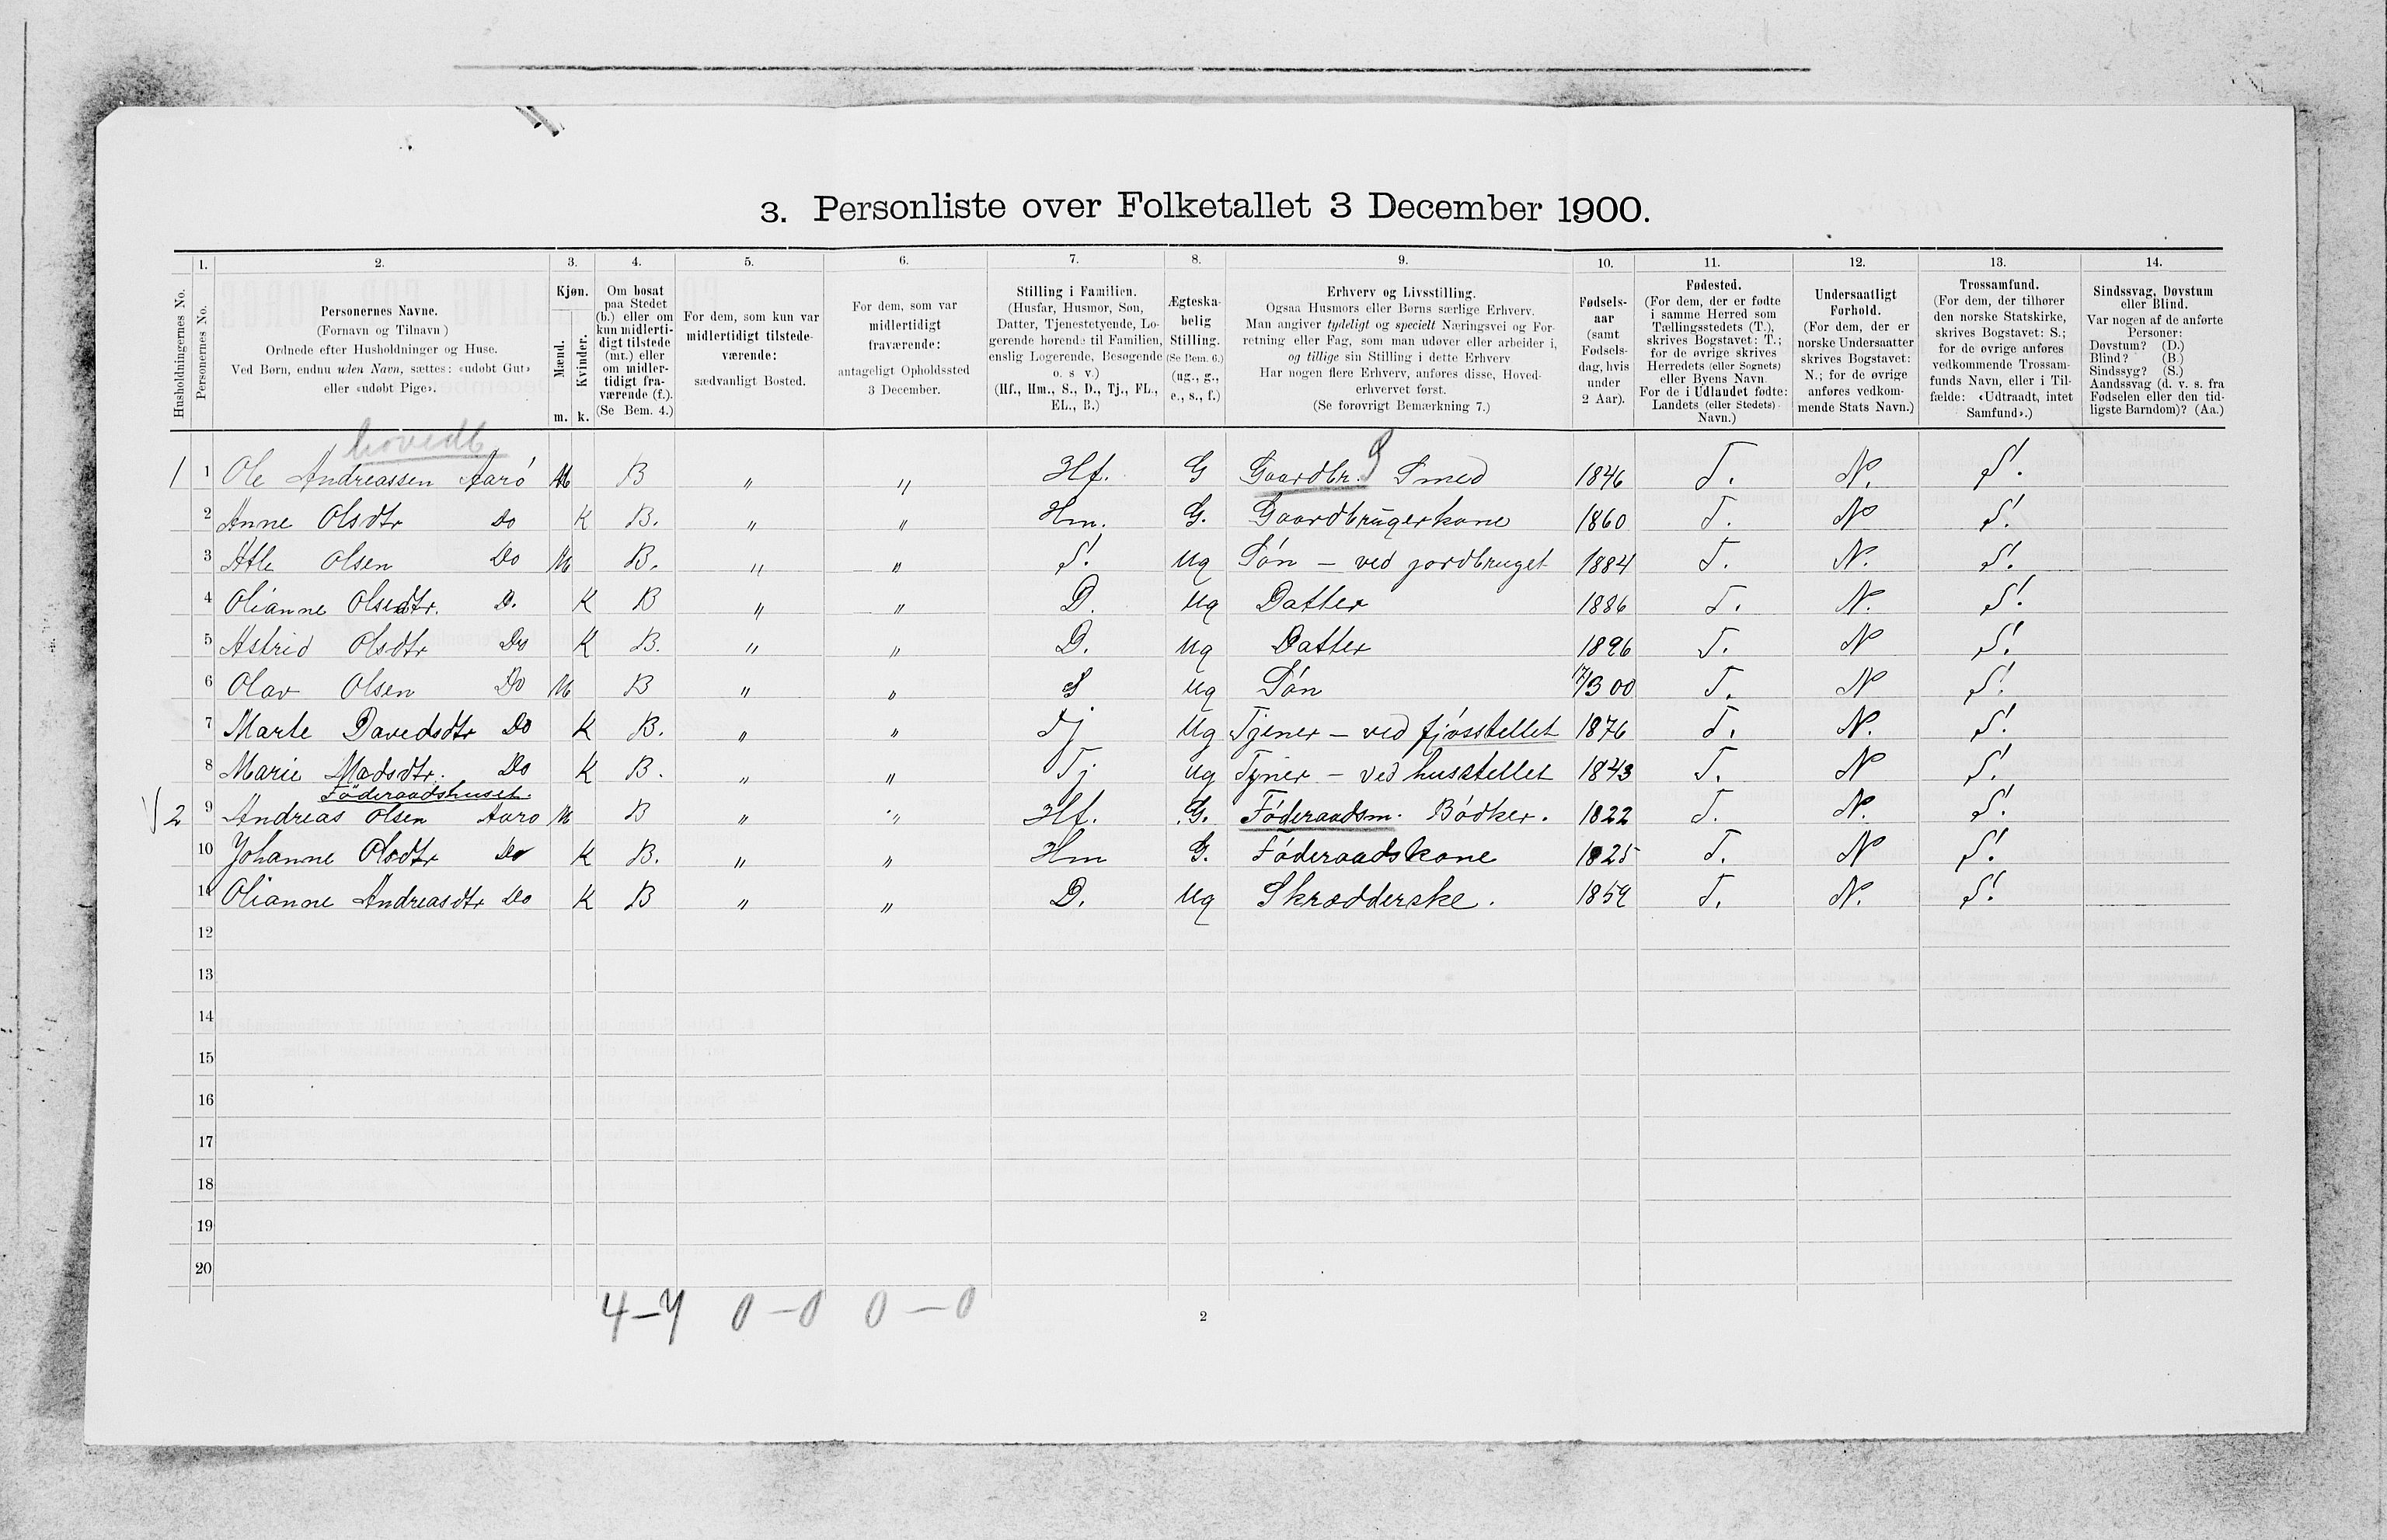 3. Personliste over Folketallet 3 December 1900.
1. 2. 3. 4. 5. 6. 7. 8. 9. 10. 11. 12. 13. 14.
Husholdningernes No.
Personernes No.
Personernes Navne.
(Fornavn og Tilnavn)
Ordnede efter Husholdninger og Huse.
Ved Børn, endnu uden Navn, sættes: «udøbt Gut»
eller «udøbt Pige».
Kjøn.
Mænd.
Kvinder.
m. k.
Om bosat
paa Stedet
(b.) eller om
kun midlerti-
digt tilstede
(mt.) eller
om midler-
tidigt fra-
værende (f.).
(Se Bem. 4.)
For dem, som kun var
midlertidigt tilstede-
værende:
sædvanligt Bosted.
For dem, som var
midlertidigt
fraværende:
antageligt Opholdssted
3 December.
Stilling i Familien.
(Husfar, Husmor, Søn,
Datter, Tjenestetyende, Lo-
gerende hørende til Familien,
enslig Logerende, Besøgende
o. s v.)
(Hf., Hm., S., D., Tj., FL.,
EL., B.)
Ægteska-
belig
Stilling.
(Se Bem. 6.)
(ug., g.,
e., s., f.)
Erhverv og Livsstilling.
Ogsaa Husmors eller Børns særlige Erhverv.
Man angiver tydeligt og specielt Næringsvei og For-
retning eller Fag, som man udøver eller arbeider i,
og tillige sin Stilling i dette Erhverv
Har nogen flere Erhverv, anføres disse, Hoved-
erhvervet først.
(Se forøvrigt Bemærkning 7.)
Fødsels-
aar
(samt
Fødsels-
dag, hvis
under
2 Aar).
Fødested.
(For dem, der er fødte
i samme Herred som
Tællingsstedets (T.),
skrives Bogstavet: T.;
for de øvrige skrives
Herredets (eller Sognets)
eller Byens Navn.
For de i Udlandet fødte:
Landets (eller Stedets)
Navn.)
Undersaatligt
Forhold.
(For dem, der er
norske Undersaatter
skrives Bogstavet:
N.; for de øvrige
anføres vedkom-
mende Stats Navn.)
Trossamfund.
(For dem, der tilhører
den norske Statskirke,
skrives Bogstavet: S.;
for de øvrige anføres
vedkommende Trossam-
funds Navn, eller i Til-
fælde: «Udtraadt, intet
Samfund».)
Sindssvag, Døvstum
eller Blind.
Var nogen af de anførte
Personer:
Døvstum? (D.)
Blind? (B.)
Sindssyg? (S.)
Aandssvag (d. v. s. fra
Fødselen eller den tid-
ligste Barndom)? (Aa.)
hovedb
1 1 Ole Andreassen Aarö M B " " Hf. G Gaardbr. S Smed 1846 T. N. S.
2 Anne Olsdtr Do K B. " " Hm. G. Gaardbrugerkone 1860 T. N S.
3 Atle Olsen Do M B. " " S. ug Søn – ved jordbruget 1884 T. N. S.
4 Olianne Olsendtr. D. K B " " D. ug Datter 1886 T. N. S.
5 Astrid Olsdtr Do K B. " " D. ug Datter 1896 T. N S.
6 Olav Olsen Do M B " " S ug Søn 17/3 00 T. N S.
7 Marte Davedsdtr Do K B. " " Tj ug Tjener – ved fjösstellet 1876 T. N. S.
8 Marie Madsdtr. Do K B. " " Tj ug Tjner – ved husstellet 1843 T. N S.
Föderaadshuset.
2 9 Andreas Olsen Aaro M B " " Hf. G. Föderaadsm. Bödker. 1822 T. N. S.
10 Johanne Olsdtr Do K B. " " Hm G. Föderaadskone 1825 T. N S.
11 Olianne Andreasdtr Do K B " " D. ug Skrædderske. 1859 T. N. S.
12
13
14
15
16
17
18
19
20
4–7 0–0 0–0
2